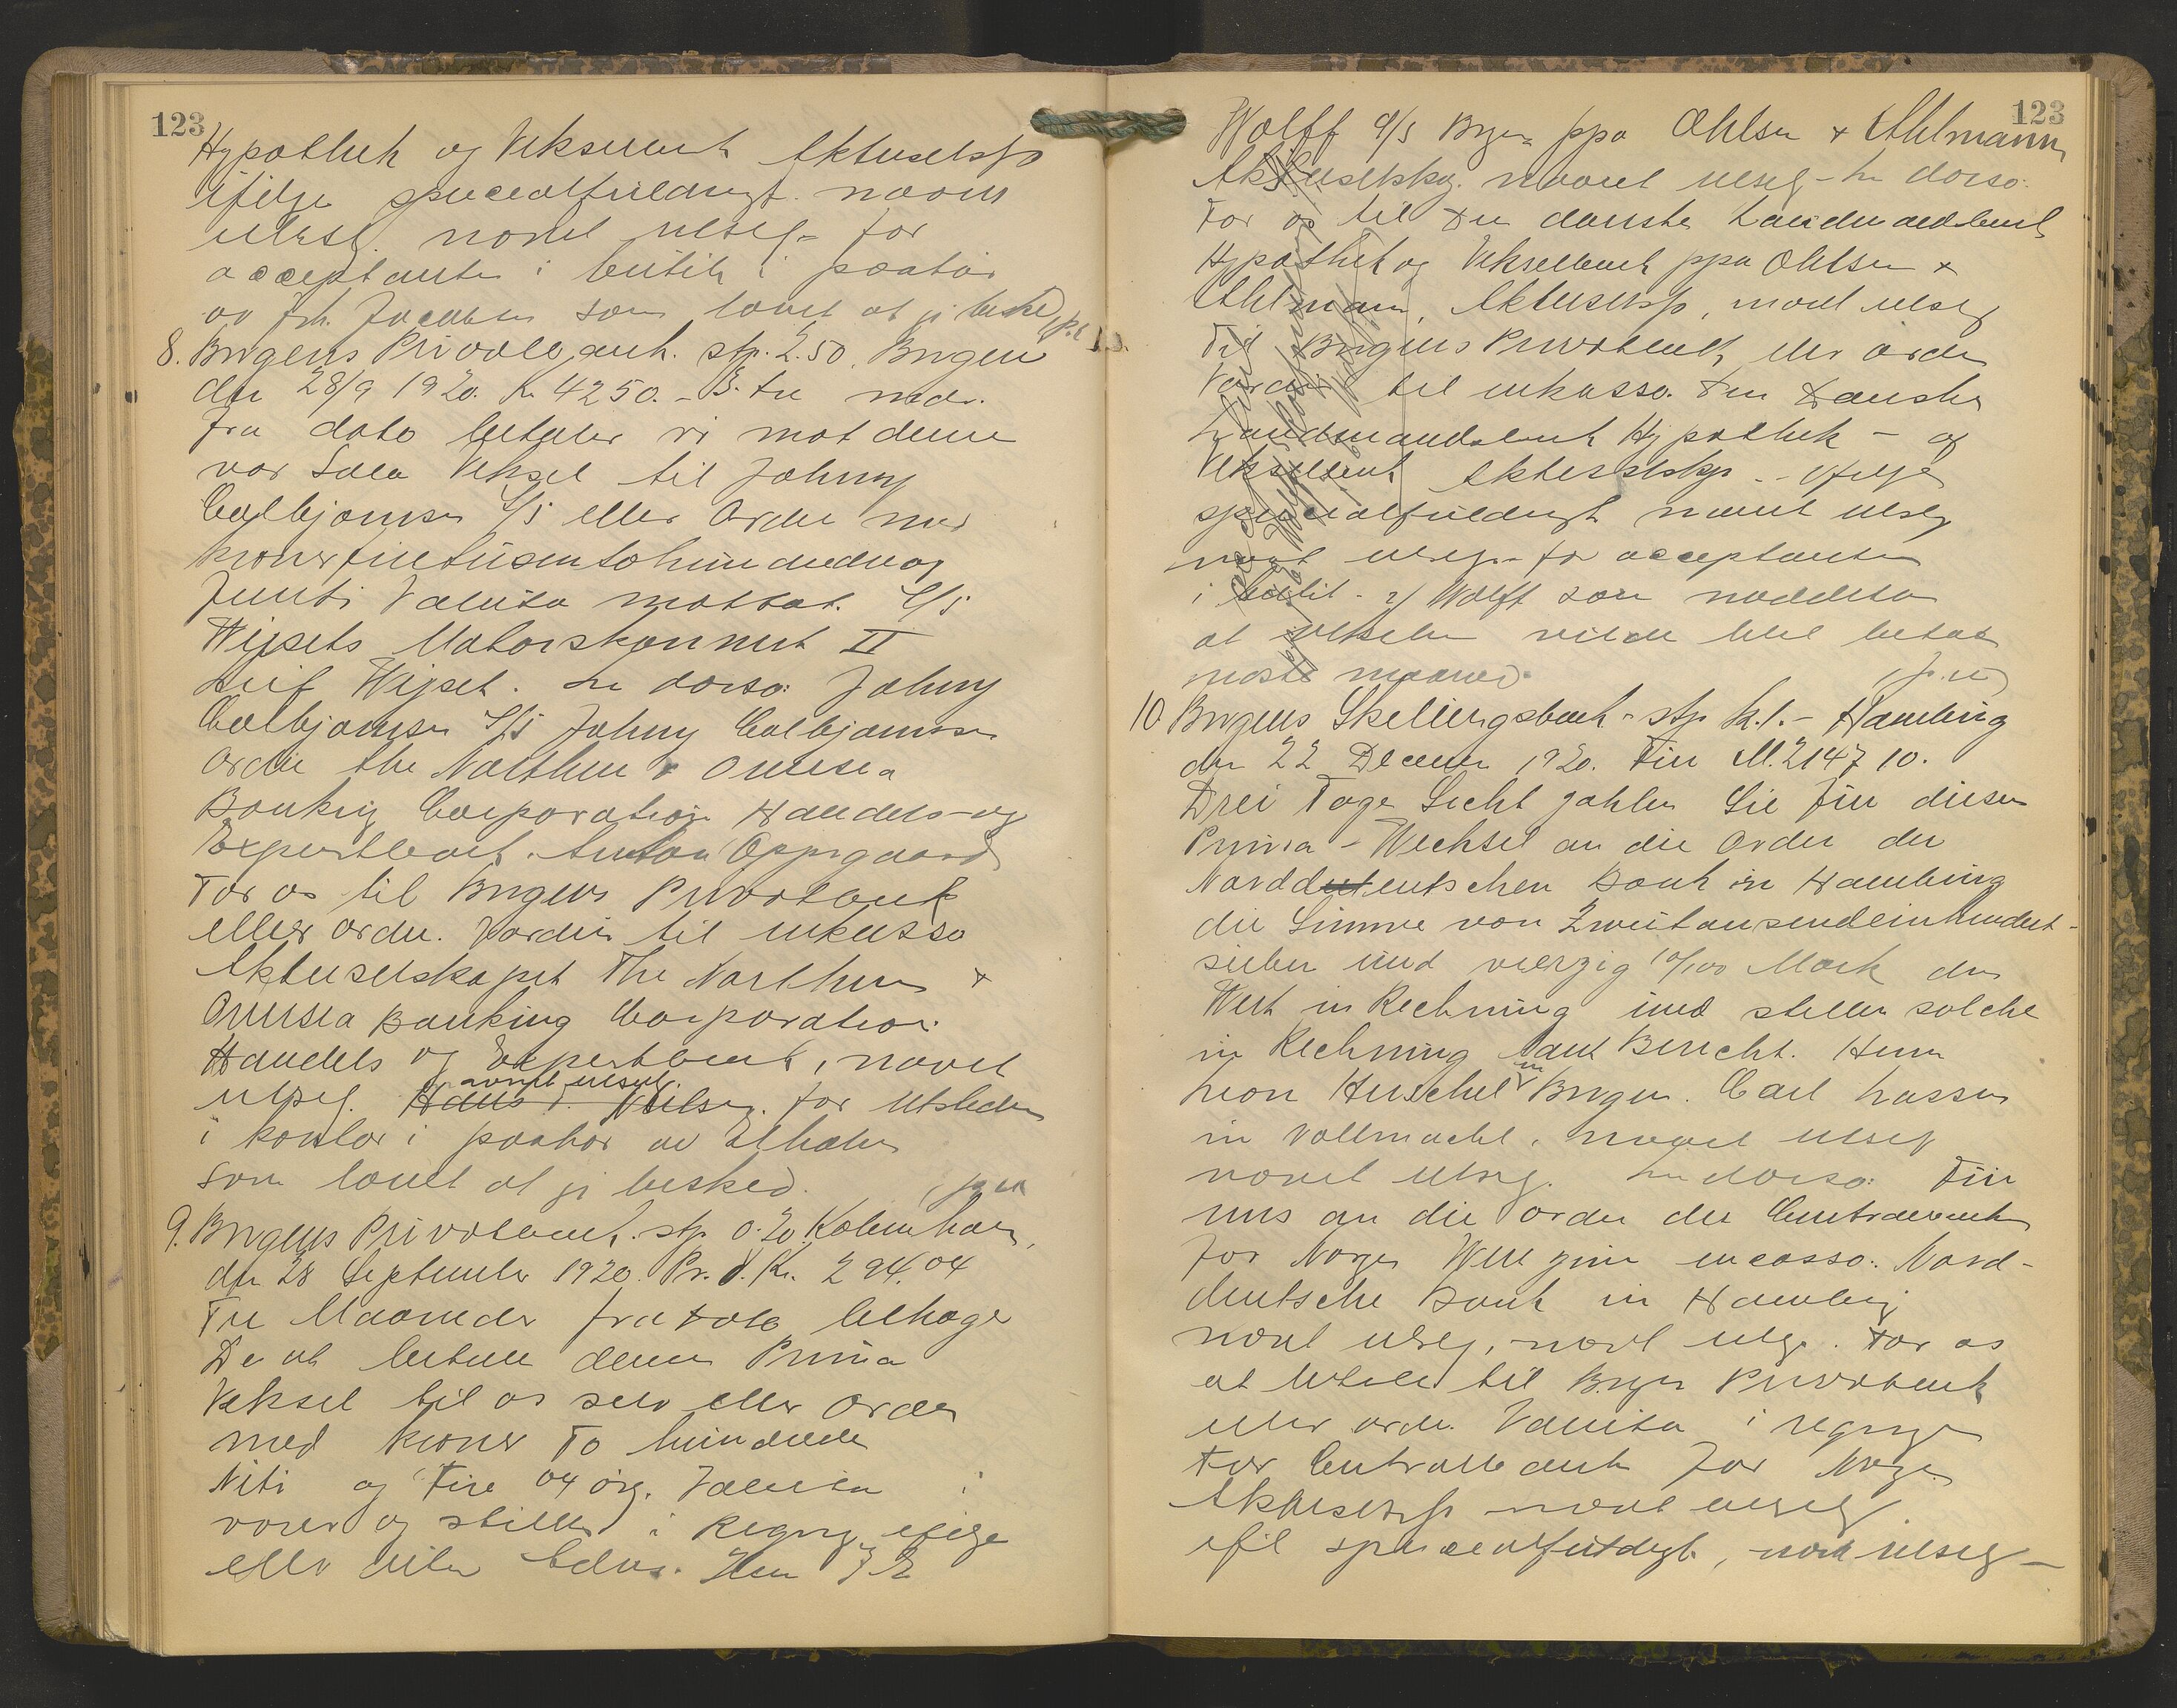 123
Hypothek og Vekselbank Aktieselskp
ifølge specialfuldmagt. navnet
utslg. navnet utslg - for
acceptanten i butik i paahør
av Frk. Jacobsen som lovet at gi besked
8. Bergens Privatbank. stp. 2.50. Bergen
den 28/9 1920. Kr 4250.- 3. tre mdr.
fra dato betaler vi mot denne
vor Sola Veksel til Johnny
Colbjørnsen A/S eller Ordre med
kroner firetusentohundredeog
femti Valuta mottat. A/S
Wejsets Motorskonnert II
Leif Wejset. In dorso: Johnny
Colbjørnsen A/S Johnny Colbjørnsen
Ordre the Northern & Oversea
Banking Corporation Handels- og
Exportbank. Anton Oppegaard
For os til Bergens Privatbank
eller ordre. Værdien til inkasso
Aktieselskapet The Northern &
Oversea Banking Corporation
Handels og Exportbank, navnet
navnet utslg.
utslg. Hans T. Nielsen. for Utstederen
i kontor i paahør av
som lovet at gi besked.
9. Bergens Privatbank. stp. 0.20. Kobenhavn,
den 28 September 1920. Pr. d. Kr. 294.04
Tre Maaneder fra dato behager
De at betale denne Prima
Veksel til os selv eller Ordre
med kroner To hundrede
Niti og Fire 04 øre. Valuta i
varer og stilles i Regning ifølge
eller uden Advis. Herr J. E.
123
Wolff A/S Bergen ppa Ohlsen & Ahlmann
Aktieselskp. navnet utslg - In dorso:
For os til Den danske Landmandsbank
Hypothek og Vekselbank ppa Ohlsen &
Ahlmann, Aktieselskp, navnet utslg
Til Bergens Privatbank eller ordre
Værdien til inkasso. Den Danske
Landmandsbank Hypothek - og
Vekselbank Aktieselskp. - ifølge
specialfuldmagt navnet utslg
navnet utslg - for acceptanten
i butik - Wolff som meddelte
at vekselen vilde blive betalt
næste maaned.
10. Bergens Skillingsbank - stp. k. 1. - Hamburg
den 22 December 1920. Für M. 2147 10.
Drei Tage Sicht zahlen Sie für diesen
Prima - Wechsel an die Order der
Norddeutschen Bank in Hamburg
die Summe von Zweitausendeinhundert-
sieben und vierzig 10/100 Mark den
Wert in Rechnung und stellen solche
in Rechnung laut Bericht. Herrn
Leon Herschel in Bergen. Carl Lassen
in Vollmacht. navnet utslg
navnet utslg. In dorso: Für
uns an die order der Centralbank
for Norges Wert zum incasso: Nord-
deutsche Bank in Hamburg
navnet utslg, navnet utslg. For os
at betale til Bergens Privatbank
eller ordre. Valuta i regning
For Centralbank for Norge
Aktieselskp navnet utslg
ifl specialfuldmgt, navnet utslg -